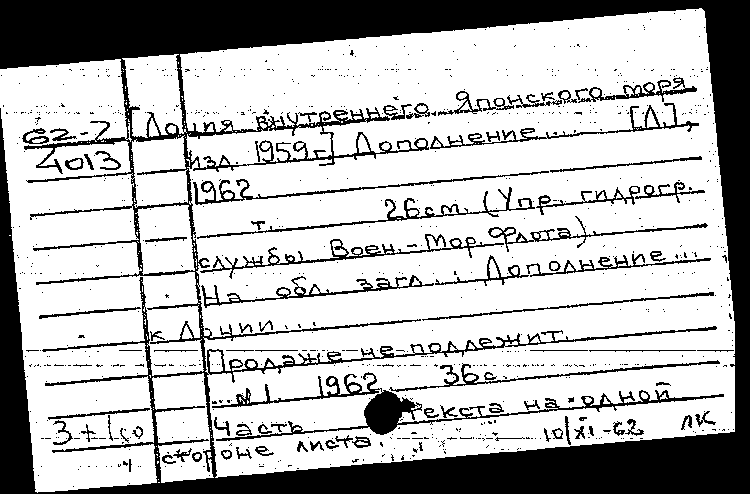 62-7 [Лоция внутреннего Японского моря
4013 изд. 1959г.] Дополнение... [Л.],
1962.
т. 26см. (Упр. гидрогр.
службы Воен.-Мор. Флота).
На обл. загл...: Дополнение...
к Лоции...
Продаже не подлежит.
...№1. 1962. 36с.
3+1 Часть текста на одной
стороне листа. 10/XI-62 ЛК